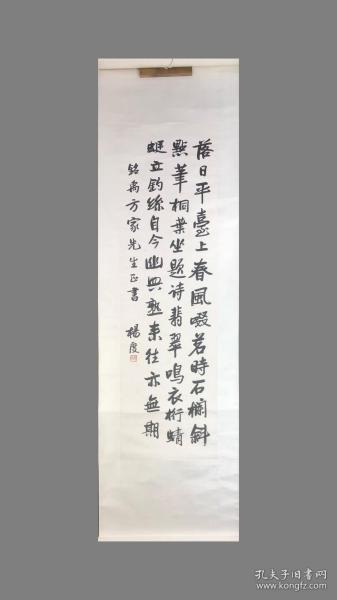 落日平臺上春風啜茗時石欄斜
點筆桐葉坐題诗翡翠鳴衣桁蜻
蜓立釣絲自今幽興熟來往亦無期
銘禹方家先生正書 楊度
孔夫子旧书网